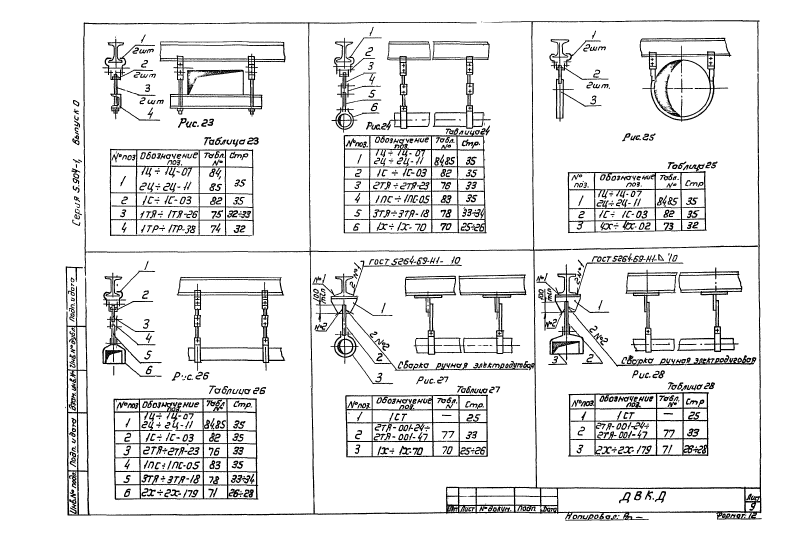 Серия 5.904-1, Выпуск 0
1
2шт
2
2шт
3
2шт
4
Рис.23
Таблица 23
№поз Обозначение поз. Табл. № Стр
1 1Ц÷1Ц-07 84,
2Ц÷2Ц-11 85 35
2 1С÷1С-03 82 35
3 1ТЯ÷1ТЯ-26 75 32÷33
4 1ТР÷1ТР-38 74 32
1
2
3
4
5
6
Рис.24
Таблица 24
№поз. Обозначение поз. Табл. № Стр.
1 1Ц÷1Ц-07
2Ц÷2Ц-11 84,85 35
2 1С÷1С-03 82 35
3 2ТЯ÷2ТЯ-23 76 33
4 1ПС÷1ПС-05 83 35
5 3ТЯ÷3ТЯ-18 78 33÷34
6 1Х÷1Х-70 70 25÷26
1
2шт
2
2шт
3
Рис.25
Таблица 25
№ поз. Обозначение поз. Табл. № Стр
1 1Ц÷1Ц-07
2Ц÷2Ц-11 84,85 35
2 1С÷1С-03 82 35
3 4Х÷4Х-02 73 32
1
2
3
4
5
6
Рис.26
Таблица 26
№поз Обозначение поз. Табл. № Стр.
1 1Ц÷1Ц-07
2Ц÷2Ц-11 84,85 35
2 1С÷1С-03 82 35
3 2ТЯ÷2ТЯ-23 76 33
4 1ПС÷1ПС-05 83 35
5 3ТЯ÷3ТЯ-18 78 33÷34
6 2Х÷2Х-179 71 26÷28
ГОСТ 5264-69-Н1- 10
№1
2 №1
100 min
1
№2
2 №2
2
Сварка ручная электродуговая
3
Рис.27
Таблица 27
№поз. Обозначение поз. Табл. N Стр.
1 1СТ — 25
2 2ТЯ-001-24÷
2ТЯ-001-47 77 33
3 1Х÷1Х-70 70 25÷26
ГОСТ 5264-69-Н1- 10
№1
2 №1
100 min
1
№2
2 №2
3 2
Сварка ручная электродуговая
Рис.28
Таблица 28
№поз. Обозначение поз. Табл. № Стр.
1 1СТ — 25
2 2ТЯ-001-24÷
2ТЯ-001-47 77 33
3 2Х÷2Х-179 71 26÷28
Инв.№ подл. Подп. и дата Взам.инв.№ Инв.№ дубл. Подп. и дата
Изм Лист № докум. Подп. Дата
ДВК.Д
Лист
9
Копировал:
Формат 12